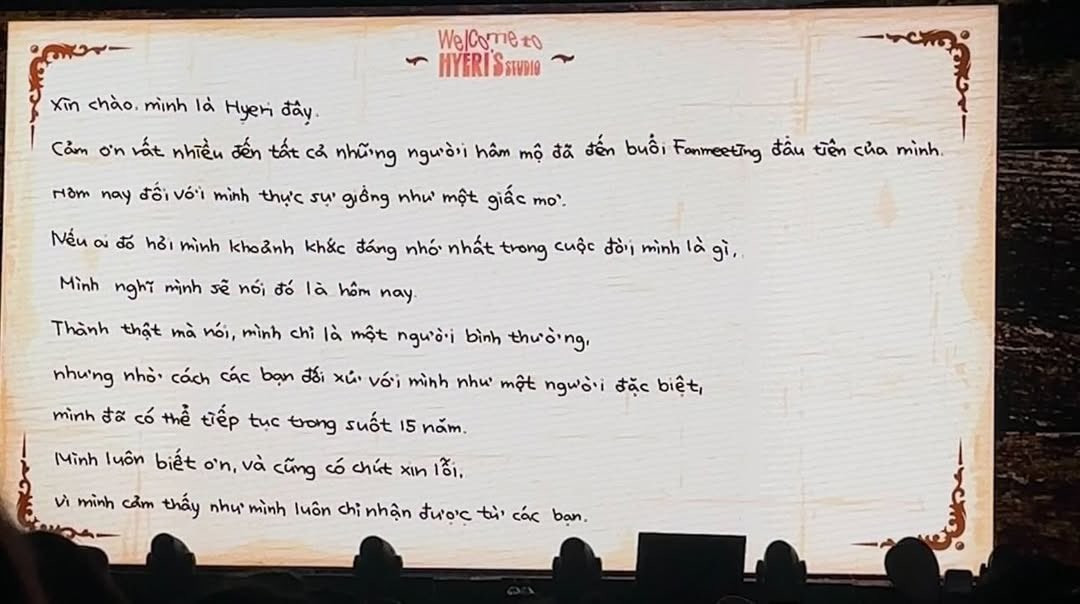 Welcome to
HYERI'S STUDIO
Xin chào, mình là Hyeri đây.
Cảm ơn rất nhiều đến tất cả những người hâm mộ đã đến buổi Fanmeeting đầu tiên của mình.
Hôm nay đối với mình thực sự giống như một giấc mơ.
Nếu ai đó hỏi mình khoảnh khắc đáng nhớ nhất trong cuộc đời mình là gì,
Mình nghĩ mình sẽ nói đó là hôm nay.
Thành thật mà nói, mình chỉ là một người bình thường,
nhưng nhờ cách các bạn đối xử với mình như một người đặc biệt,
mình đã có thể tiếp tục trong suốt 15 năm.
Mình luôn biết ơn, và cũng có chút xin lỗi,
vì mình cảm thấy như mình luôn chỉ nhận được từ các bạn.